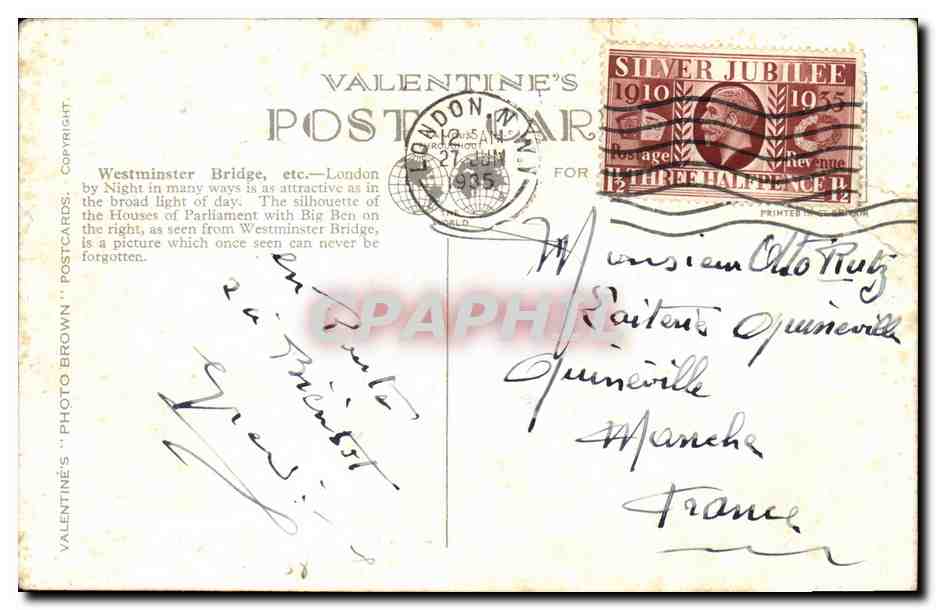 VALENTINE'S
POSTCARD
FOR
VALENTINE'S "PHOTO BROWN" POSTCARDS. COPYRIGHT.
Westminster Bridge, etc.—London
by Night in many ways is as attractive as in
the broad light of day. The silhouette of
the Houses of Parliament with Big Ben on
the right, as seen from Westminster Bridge,
is a picture which once seen can never be
forgotten.
LONDON N.W.1
27 JUN
1935
SILVER JUBILEE
1910 1935
Postage Revenue
1½ THREE HALFPENCE 1½
PRINTED IN
en Route
à Bientôt
Monsieur Otto Rutz
Laiterie Quinéville
Quinéville
Manche
France
CPAPHIL